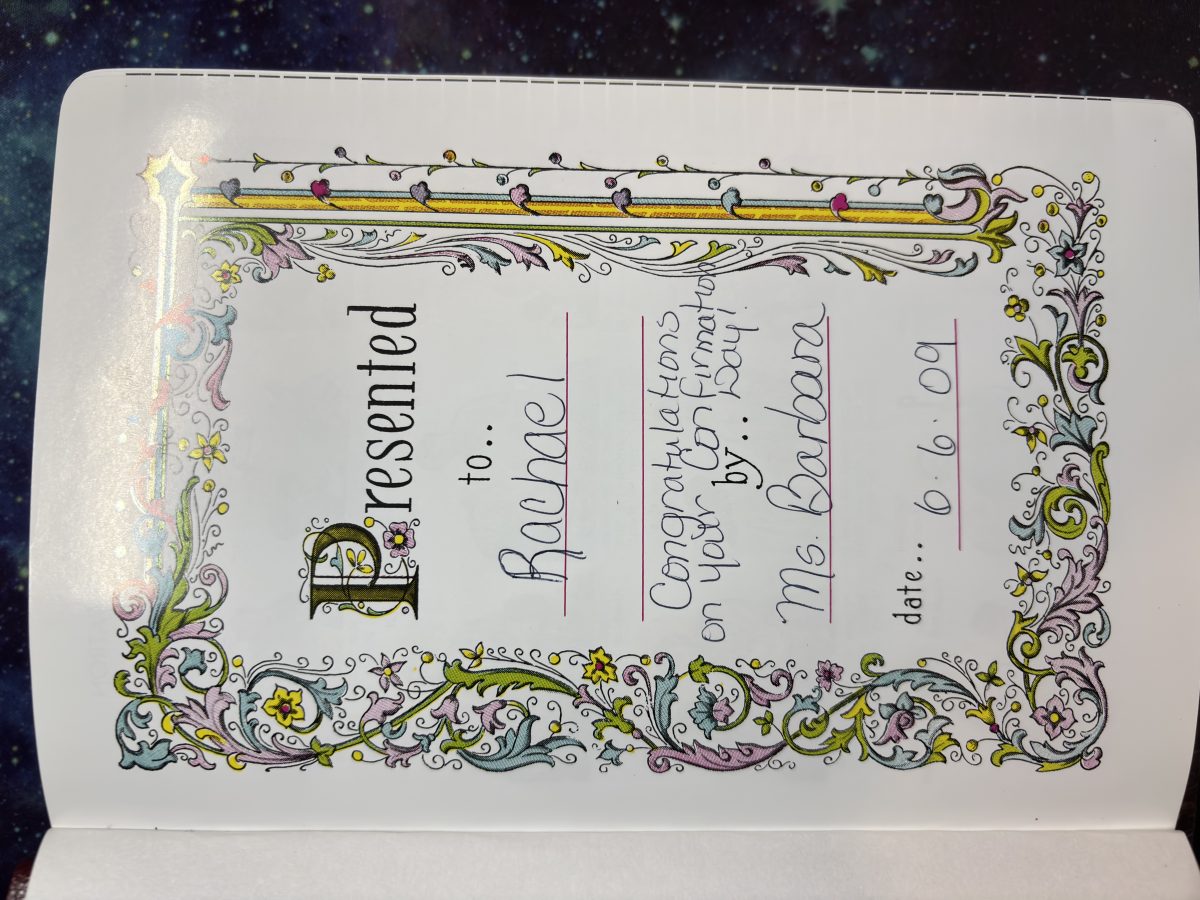 Presented
to..
Rachael
Congratulations
on your Confirmation
Day!
by..
Ms. Barbara
date.. 6.6.09